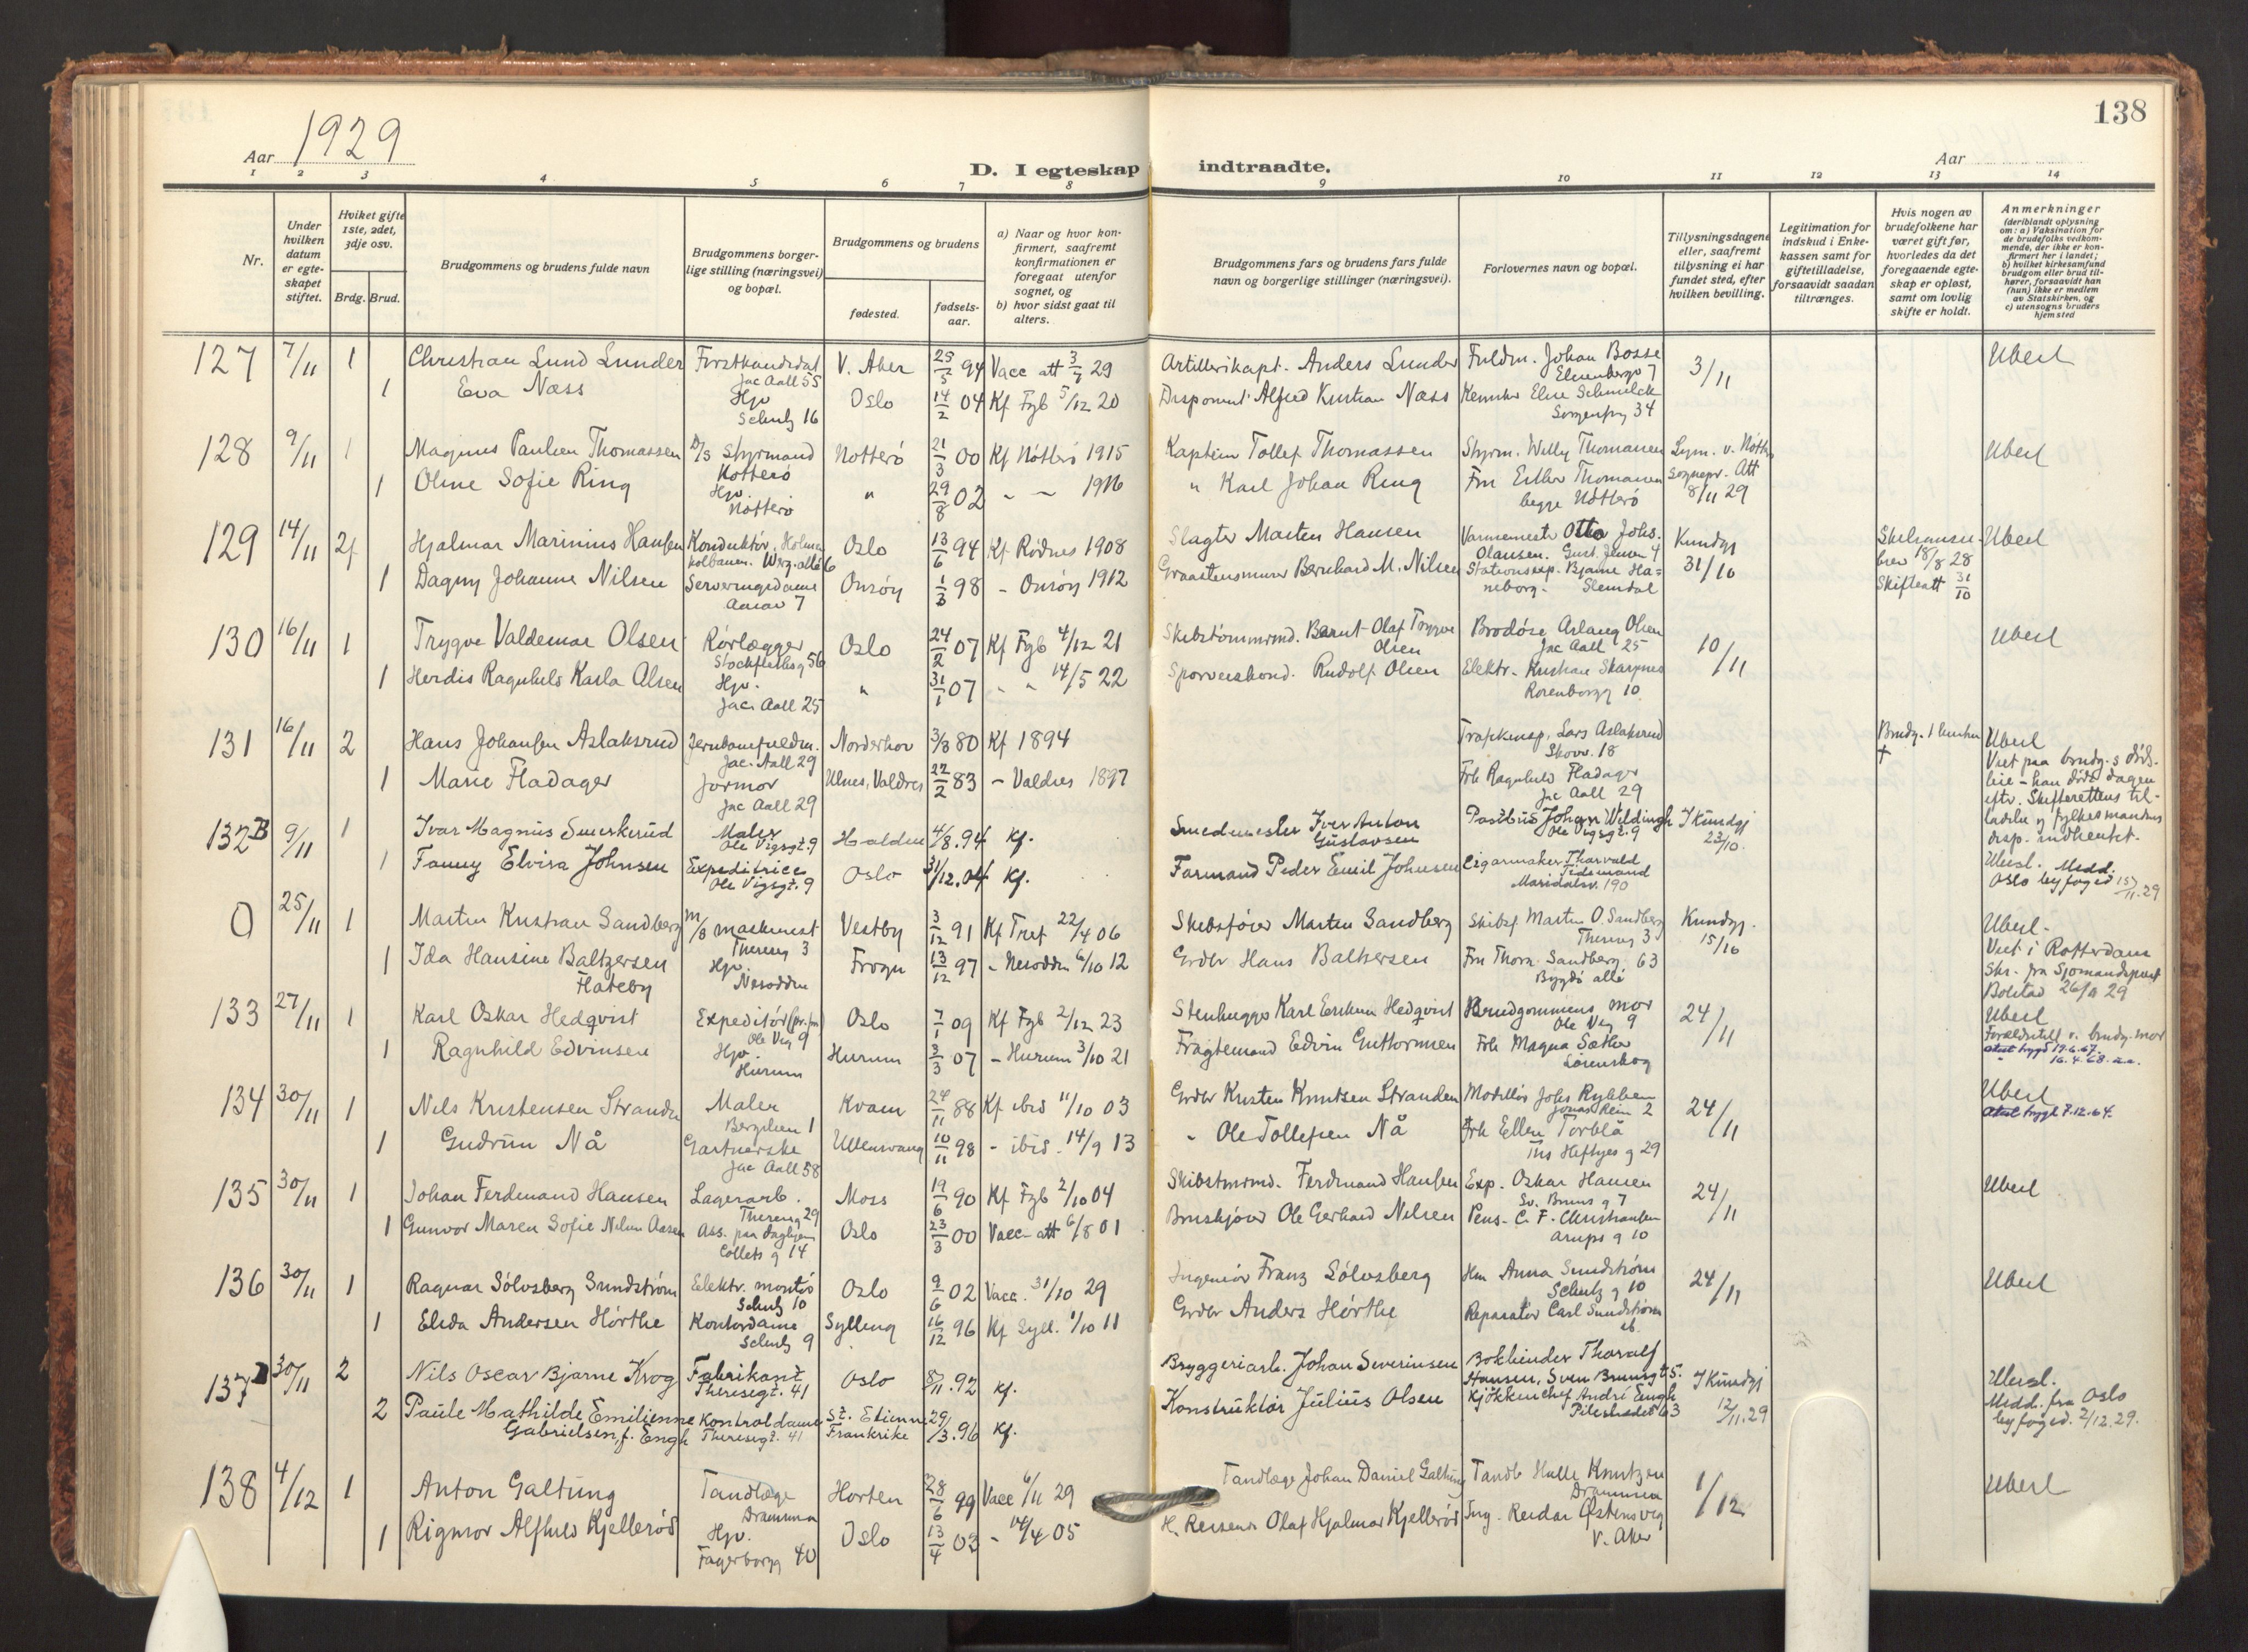 138
Aar 1929
D. I egteskap indtraadte.
Aar
1 2 3 4 5 6 7 8 9 10 11 12 13 14
Nr.
Under hvilken datum er egteskapet stiftet.
Hviket gifte 1ste, 2det, 3dje osv.
Brdg. Brud.
Brudgommens og brudens fulde navn
Brudgommens borgerlige stilling (næringsvei) og bopæl.
Brudgommens og brudens
fødested.
fødselsaar.
a) Naar og hvor konfirmert, saafremt konfirmationen er foregaat utenfor sognet, og
b) hvor sidst gaat til alters.
Brudgommens fars og brudens fars fulde navn og borgerlige stillinger (næringsvei).
Forlovernes navn og bopæl.
Tillysningsdagene eller, saafremt tillysning ei har fundet sted, efter hvilken bevilling.
Legitimation for indskud i Enkekassen samt for giftetilladelse, forsaavidt saadan tiltrænges.
Hvis nogen av brudefolkene har været gift før, hvorledes da det foregaaende egteskap er opløst, samt om lovlig skifte er holdt.
Anmerkninger
(deriblandt oplysning om: a) Vaksination for de brudefolks vedkommende, der ikke er konfirmert her i landet; b) hvilket kirkesamfund brudgom eller brud tilhører, forsaavidt han (hun) ikke er medlem av Statskirken, og c) utensogns bruders hjemsted
127 7/11 1 Christian Lund Lunder Forstkandidat Jac Aall 55 V. Aker 25/5 94 Vacc att 3/7 29 Artillerikapt. Anders Lunder Fuldm. Johan Bosse 3/11 Uberl
1 Eva Næss Hjv Schultz 16 Oslo 14/2 04 Kf Fgb 5/12 20 Disponent Alfred Kristian Næss Sorgenfrig 34
128 9/11 1 Magnus Paulsen Thomassen D/S Styrmand Nøtterø Nøtterø 21/3 00 Kf Nøtterø 1915 Kaptein Tollef Thomassen Styrm. Willy Thomassen Lysn. v. Nøtterø sognepr. Att 8/11 29 Uberl
1 Oline Sofie Ring Hjv. Nøtterø " 29/8 02 - - 1916 " Karl Johan Ring Fru Esther Thomassen begge Nøtterø
129 14/11 2f Hjalmar Marinius Hansen Konduktør, Holmenkolbanen. Werg. allé 6 Oslo 13/6 94 Kf Rødnes 1908 Slagter Martin Hansen Varmemester Otto Johs. Olausen. Gust. Jensen 4 Kundgj 31/10 Skilsmissebrev 18/8 28 Skifteatt 31/10 Uberl
1 Dagny Johanne Nilsen Serveringsdame 7 Onsøy 1/3 98 - Onsøy 1912 Graastensmurer Bernhard M. Nilsen Stationsexp. Bjarne Haneborg. Slemdal
130 16/11 1 Trygve Valdemar Olsen Rørlægger Stockflethsg 56 Oslo 24/2 07 Kf Fgb 4/12 21 Skibstømmrmd. Bernt Olaf Trygve Olsen Aslaug Olsen Jac Aall 25 10/11 Uberl
1 Herdis Ragnhild Karla Olsen Hjv. Jac. Aall 25 " 31/1 07 - " 14/5 22 Sporveiskond. Rudolf Olsen Elektr. Kristian Skarpnes Rosenborgg 10
131 16/11 2 Hans Johansen Aslaksrud Jernbanefuldm. Jac. Aall 29 Norderhov 3/8 80 Kf 1894 Trafikinsp. Lars Aslaksrud Skovv. 18 Brudg. 1 hustru + Uberl Viet paa brudg.s dødsleie - han døde dagen eftr. Skifterettens tilladelse og fylkesmandens disp. indhentet.
1 Marie Fladager Jormor Jac Aall 29 Ulnes, Valdres 22/2 83 - Valdres 1897 Frk Ragnhild Fladager Jac Aall 29
132B 9/11 1 Ivar Magnus Smerkerud Maler Ole Vigsgt. 9 Halden 4/8. 94 Kf. Smedmester Iver Anton Gustavsen Postbud Johan Wildingh Ole Vigsgt. 9 I Kundgj 23/10. Uberl. Medd. Oslo byfoged 15/11.29
1 Fanny Elvira Johnsen Expeditrice Ole Vigsgt. 9 Oslo 31/12. 04 Kf. Formand Peder Emil Johnsen Cigarmaker Thorvald Tidemand Maridalsv. 190
0 25/11 1 Martin Kristian Sandberg m/s maskinist Theresg 3 Vestby 3/12 91 Kf Tref 22/4 06 Skibsfører Martin Sandberg Skibsf Martin O. Sandberg Theresg 3 Kundgj. 15/10 Uberl. Viet i Rotterdam Skr. fra Sjømandsprest Bolstad 26/11 29
1 Ida Hansine Baltzersen Flateby Hjv. Nesodden Frogn 13/12 97 - Nesodden 6/10 12 Grdbr Hans Baltzersen Fru Thora Sandberg 63 Bygdø allé
133 27/11 1 Karl Oskar Hedqvist Expeditør Ole Vig 9 Oslo 7/1 09 Kf Fgb 2/12 23 Stenhugger Karl Eriksen Hedqvist Brudgommens mor Ole Vig 9 24/11 Uberl Forældretill v. brudg. mor
1 Ragnhild Edvinsen Hjv. Hurum Hurum 3/3 07 - Hurum 3/10 21 Fragtemand Edvin Guttormsen Frk Magna Sæther Lørenskog attest trygd 19.6.67. 16.4.68.
134 30/11 1 Nils Kristensen Stranden Maler Bergslien 1 Kvam 24/11 88 Kf ibid 11/10 03 Grdbr Kristen Knutsen Stranden Modellør Johs Rykken Jonas Rein 2 24/11 Uberl attest trygd 7.12.64.
1 Gudrun Nå Gartnerske Jac Aall 58 Ullensvang 10/11 98 - ibid. 14/9 13 " Ole Tollefsen Nå Frk Ellen Torblå Ths Heftyes g 29
135 30/11 1 Johan Ferdinand Hansen Lagerarb. Theresg 29 Moss 19/6 90 Kf Fgb 2/10 04 Skibstmrmd. Ferdinand Hansen Exp. Oskar Hansen Sv. Bruns g 7 24/11 Uberl
1 Gunvor Maren Sofie Nilsen Aasen Ass. paa daghjem Collets g 14 Oslo 23/3 00 Vacc att 6/8 01 Bruskjører Ole Gerhard Nilsen Pens. C. F. Christiansen Arups g 10
136 30/11 1 Ragnar Sølvsberg Sundstrøm Elektr. montør Schultz 10 Oslo 9/6 02 Vacc. 31/10 29 Ingeniør Franz Sølvsberg Anna Sundstrøm Schultz g 10 24/11 Uberl
1 Elida Andersen Hørthe Kontordame Schultz 9 Sylling 16/12 96 Kf Syll. 1/10 11 Grdbr Anders Hørthe Reparatør Carl Sundstrøm
137B 30/11 2 Nils Oscar Bjarne Krog Fabrikant Theresegt. 41 Oslo 8/11. 92 Kf. Bryggeriarb. Johan Severinsen Bokbinder Thoralf Hansen, Sven Brunsgt 5. I Kundgj 12/11.29 Uberl. Medd. fra Oslo byfoged. 2/12.29.
2 Paule Mathilde Emilienne Gabrielsen, f. Engh Kontroldame Theresegt. 41 St. Etienne Frankrike 29/3. 96 Kf. Konstruktør Julius Olsen Kjøkkenchef André Engh Pilestrædet 63
138 4/12 1 Anton Galtung Tandlæge Drammen Horten 28/6 99 Vacc 6/11 29 Tandlæge Johan Daniel Galtung Tandl. Halle Knutzen Drammen 1/12 Uberl
1 Rigmor Alfhild Kjellerød Hjv. Fagerborgg 40 Oslo 13/4 03 - 14/4 05 H. Reisende Olaf Hjalmar Kjellerød Ing. Reidar Østensvig V. Aker